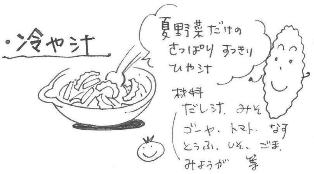 ・冷や汁
夏野菜だけの
さっぱり すっきり
ひや汁
材料
だし汁、みそ
ゴーヤ、トマト、なす
とうふ、しそ、ごま、
みょうが 等